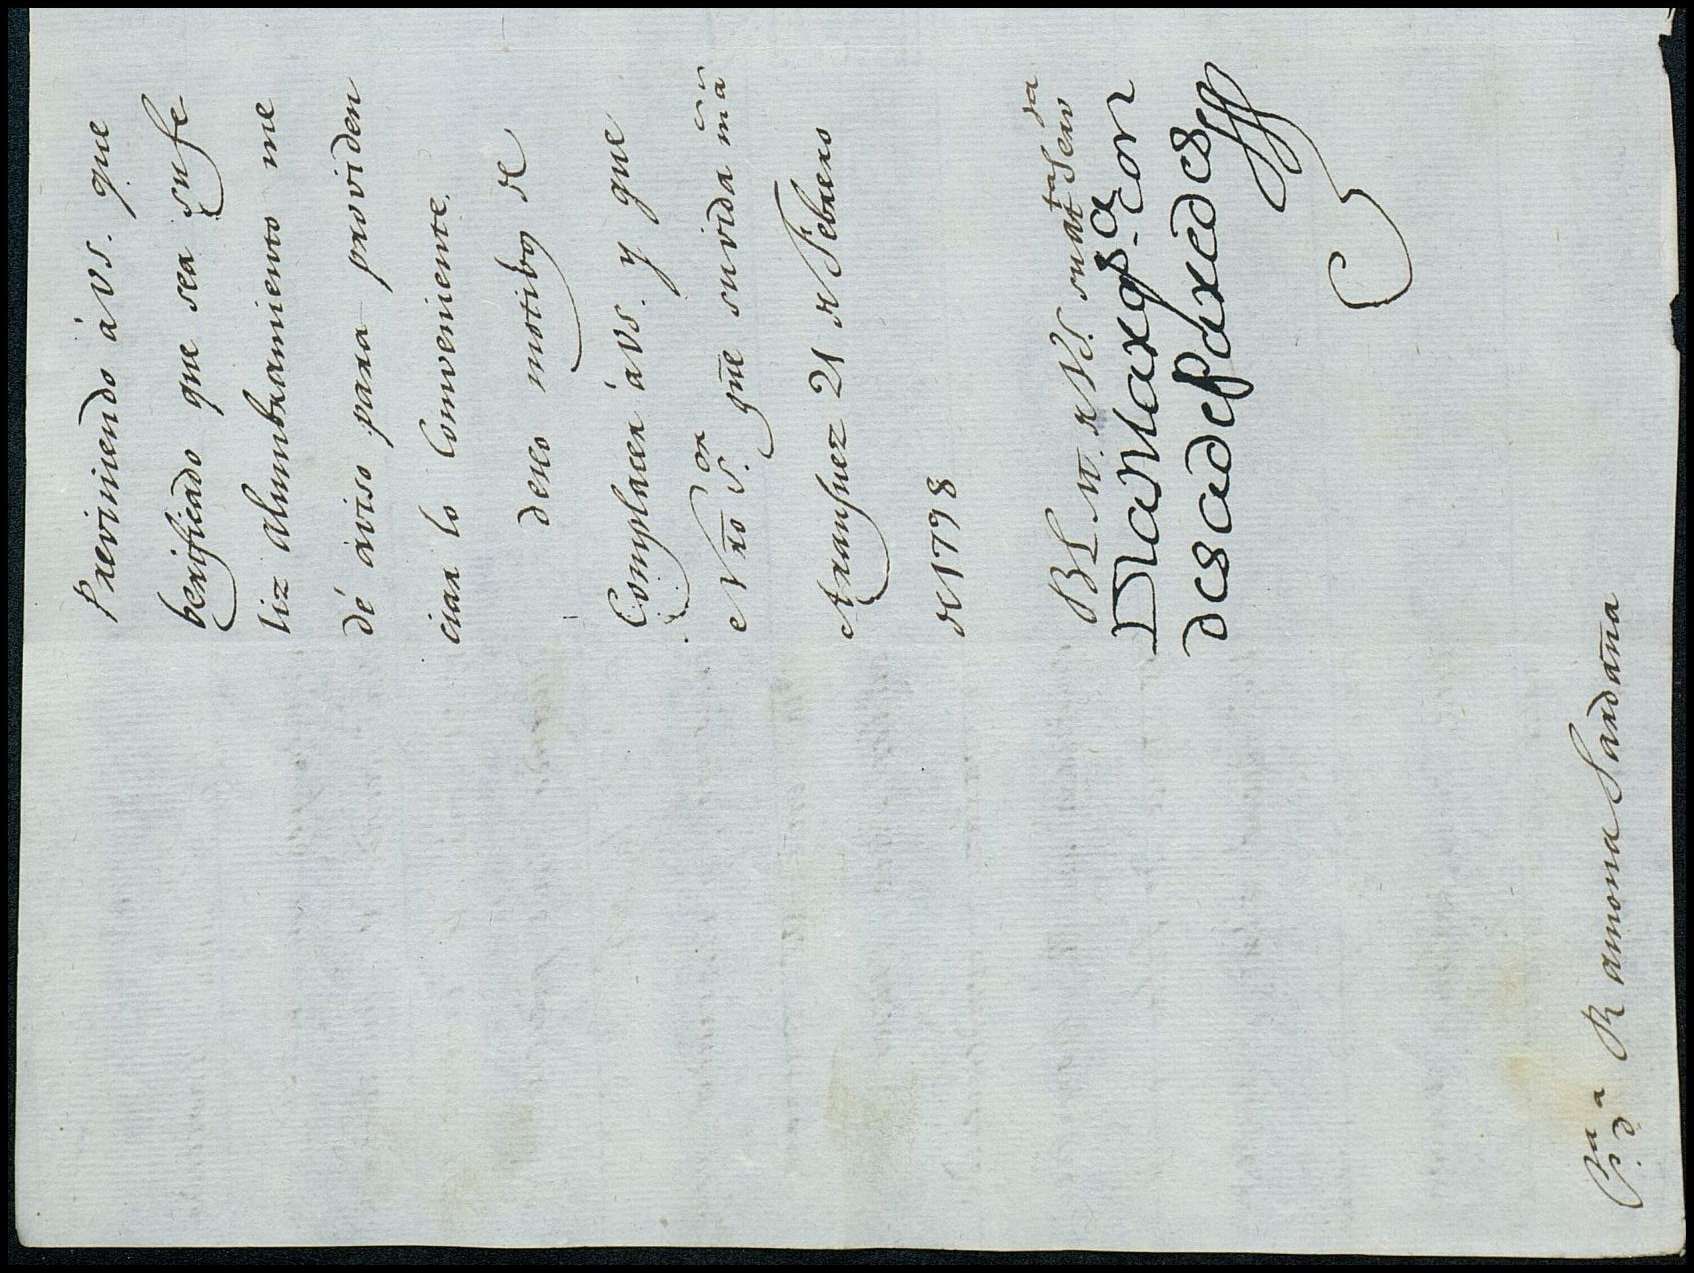 Previniendo á VS. que
berificado que sea su fe
liz alumbramiento me
dé áviso para providen
ciar lo Comveniente.
deseo motibos de
Complacer á VS. y que
Nr̃o S.or gũe su vida m.s a.s
Aranjuez 21 de Febrero
de 1798
BLM. de VS. su at.ta Serv.da
Dia Marg.a con
desa de Paredes
S.ra D.a Ramona Sardaña